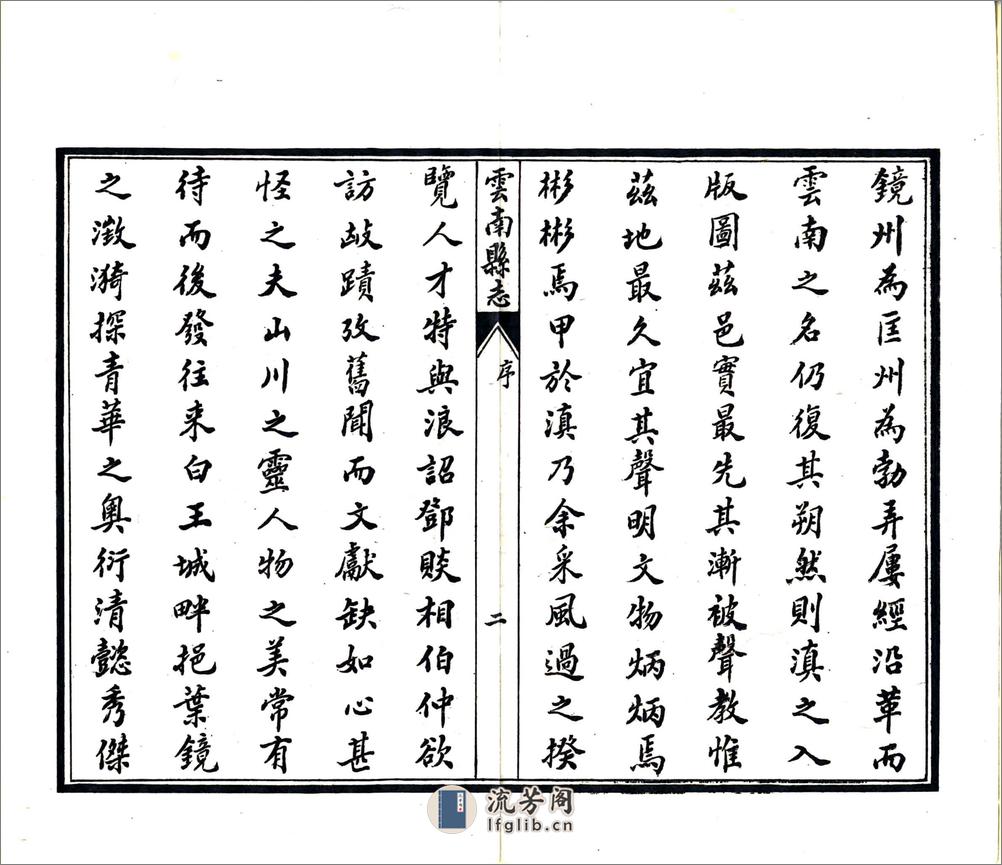 鏡州為匡州為勃弄屢經沿革而
雲南之名仍復其朔然則滇之入
版圖茲邑實最先其漸被聲教惟
茲地最久宜其聲明文物炳炳焉
彬彬焉甲於滇乃余采風過之揆
雲南縣志
序
二
覽人才特與浪詔鄧賧相伯仲欲
訪故蹟攷舊聞而文獻缺如心甚
怪之夫山川之靈人物之美常有
待而後發往来白王城畔挹葉鏡
之澂漪探青華之奧衍清懿秀傑
流芳阁
lfglib.cn